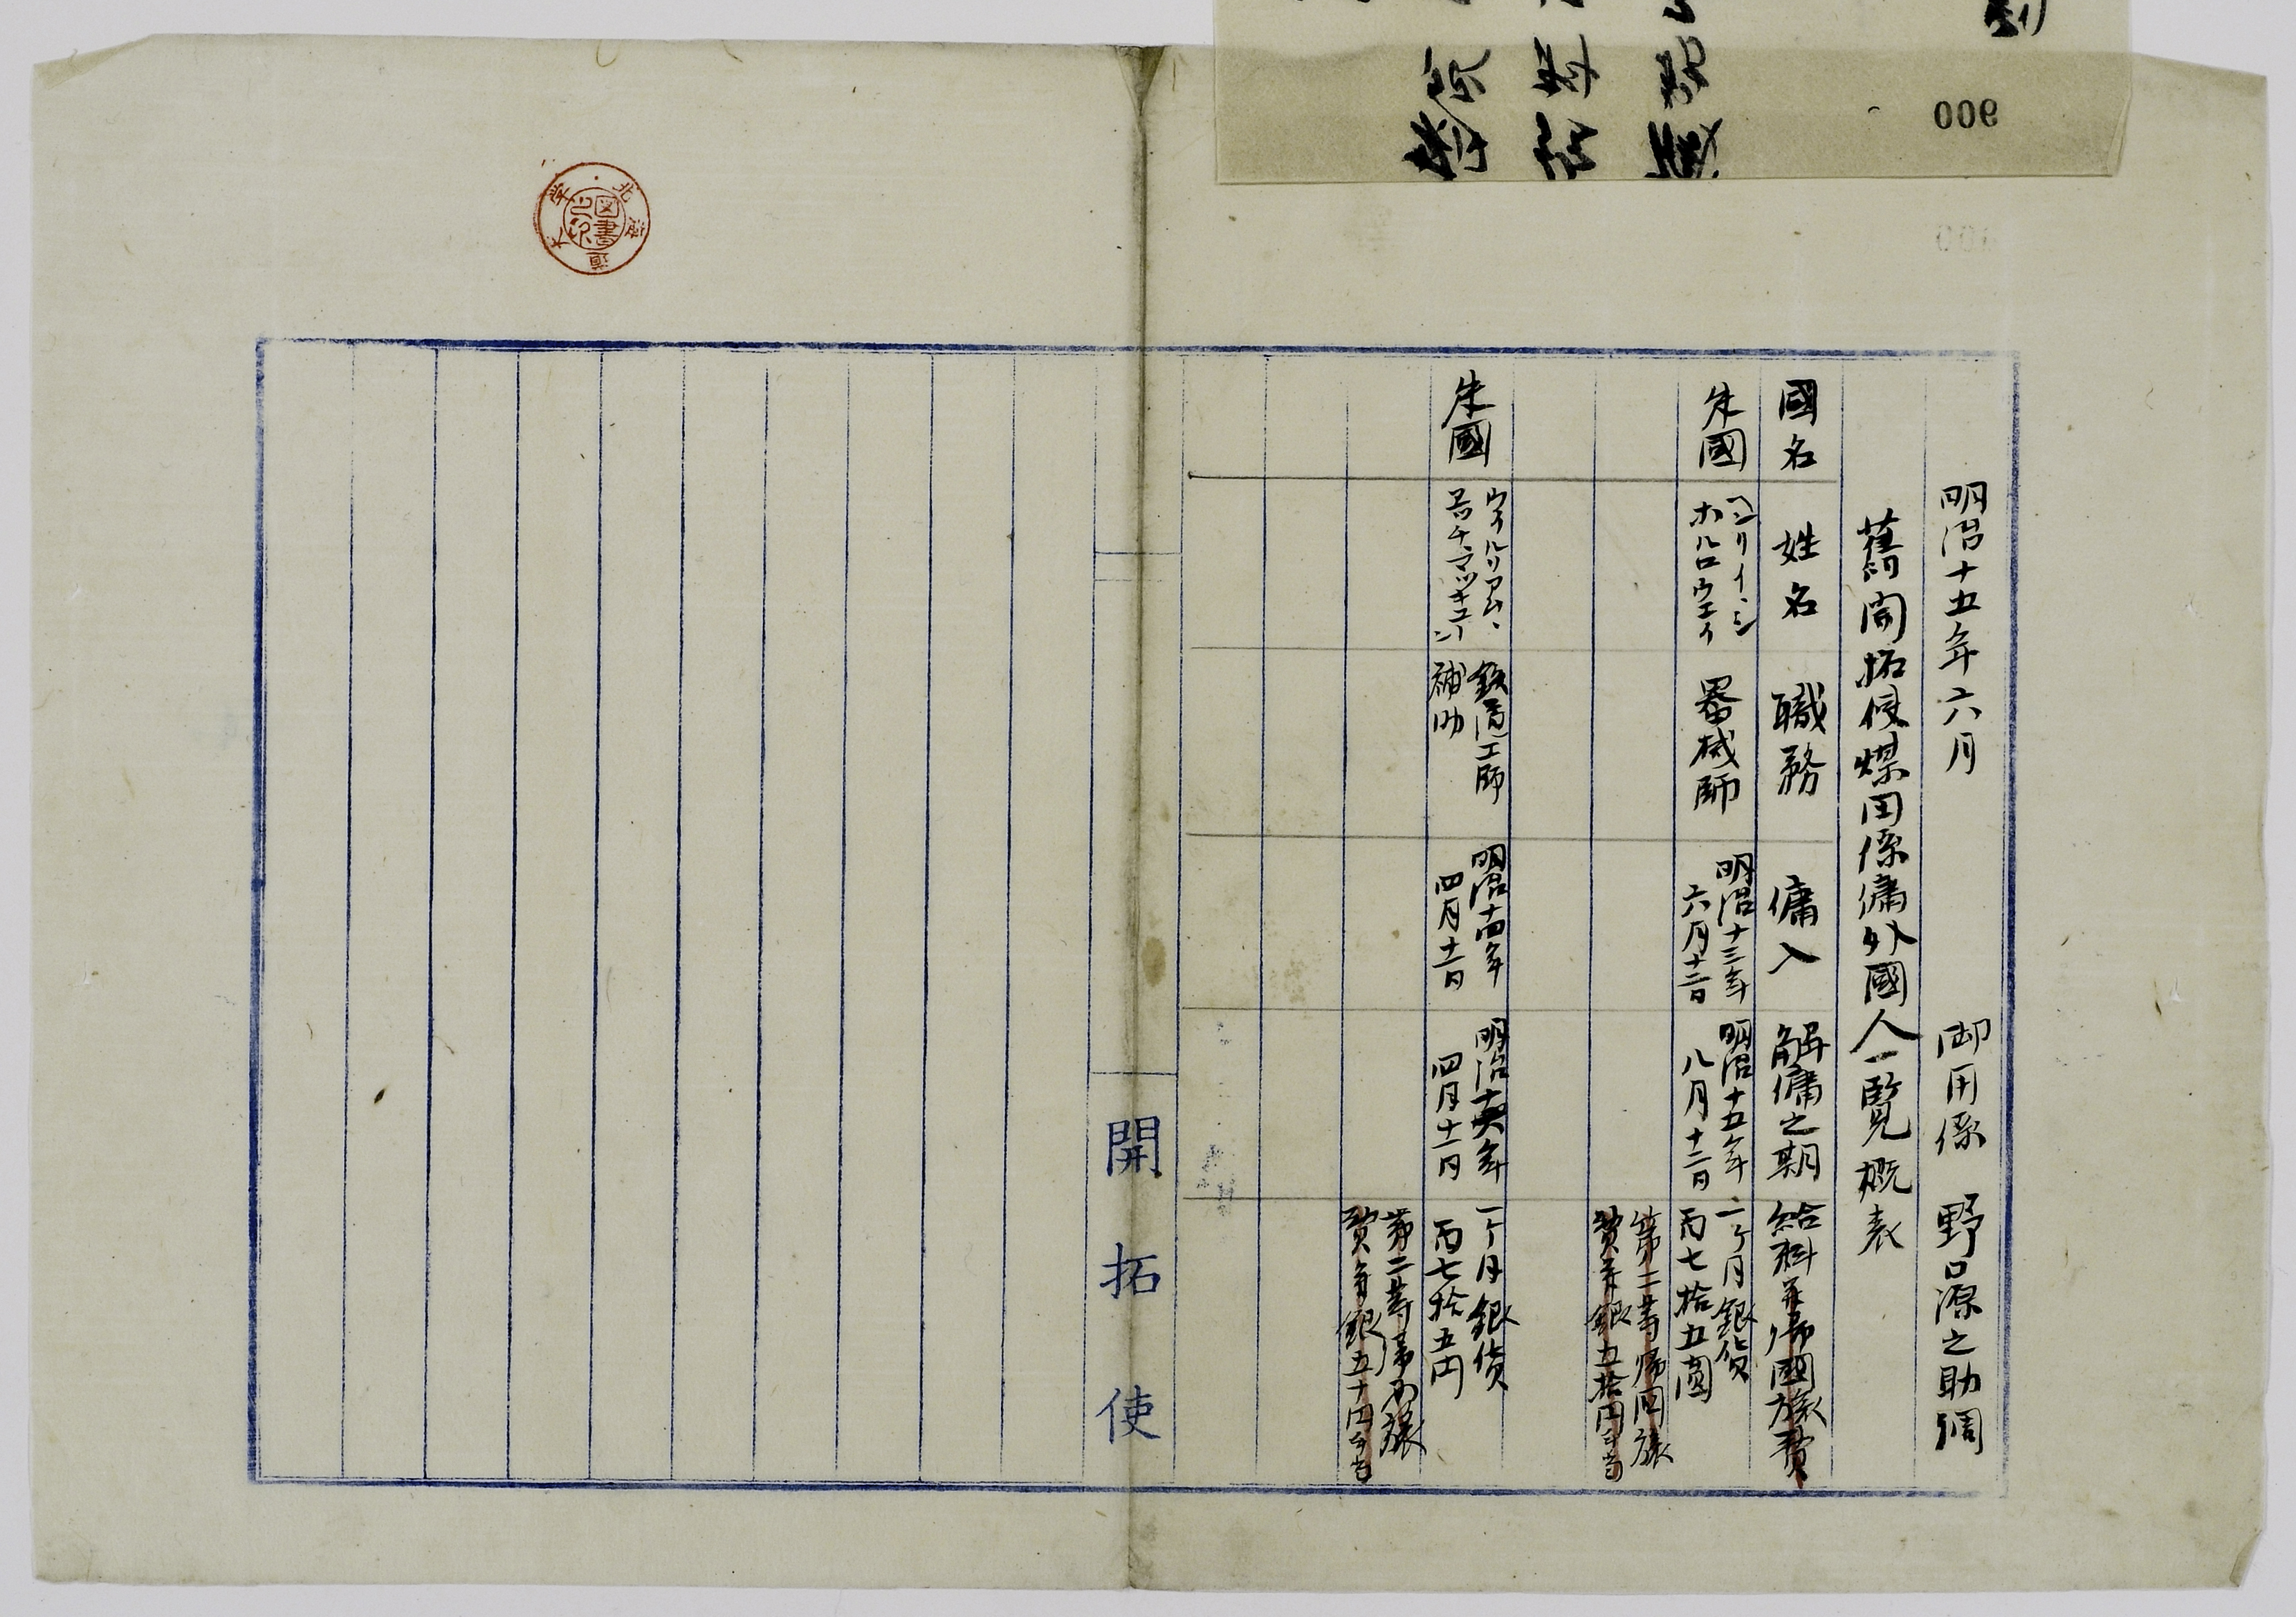 明治十五年六月　御用係　野口源之助調
舊開拓使煤田係傭外國人一覧概表
國名　姓名　職務　傭入　解傭之期　給料并帰國旅費
米國
ヘンリイ、シ
ホルロウエイ
器械師
明治十三年
六月十三日
明治十五年
八月十二日
一ヶ月銀貨
百七拾五圓
第二等帰国旅
費并銀五拾円手当
米國
ウイルリアム、
鉄道工師
補助
明治十四年
四月十二日
四月十一日
一ヶ月銀貨
百七拾五円
第二等帰国旅
費并銀五十円手当
開拓使
北海道大学
図書